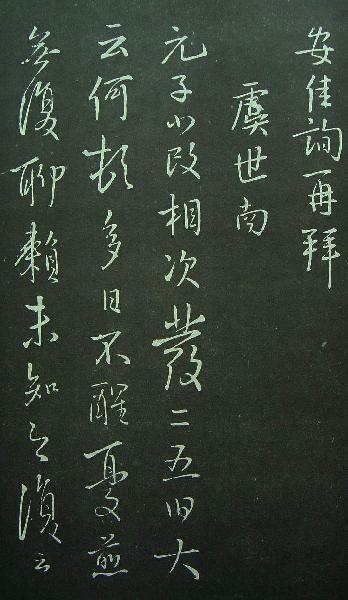 安佳詢再拜
虞世南
元子小改相次發二五日大
云何頓多日不醒憂煎
無復聊賴未知